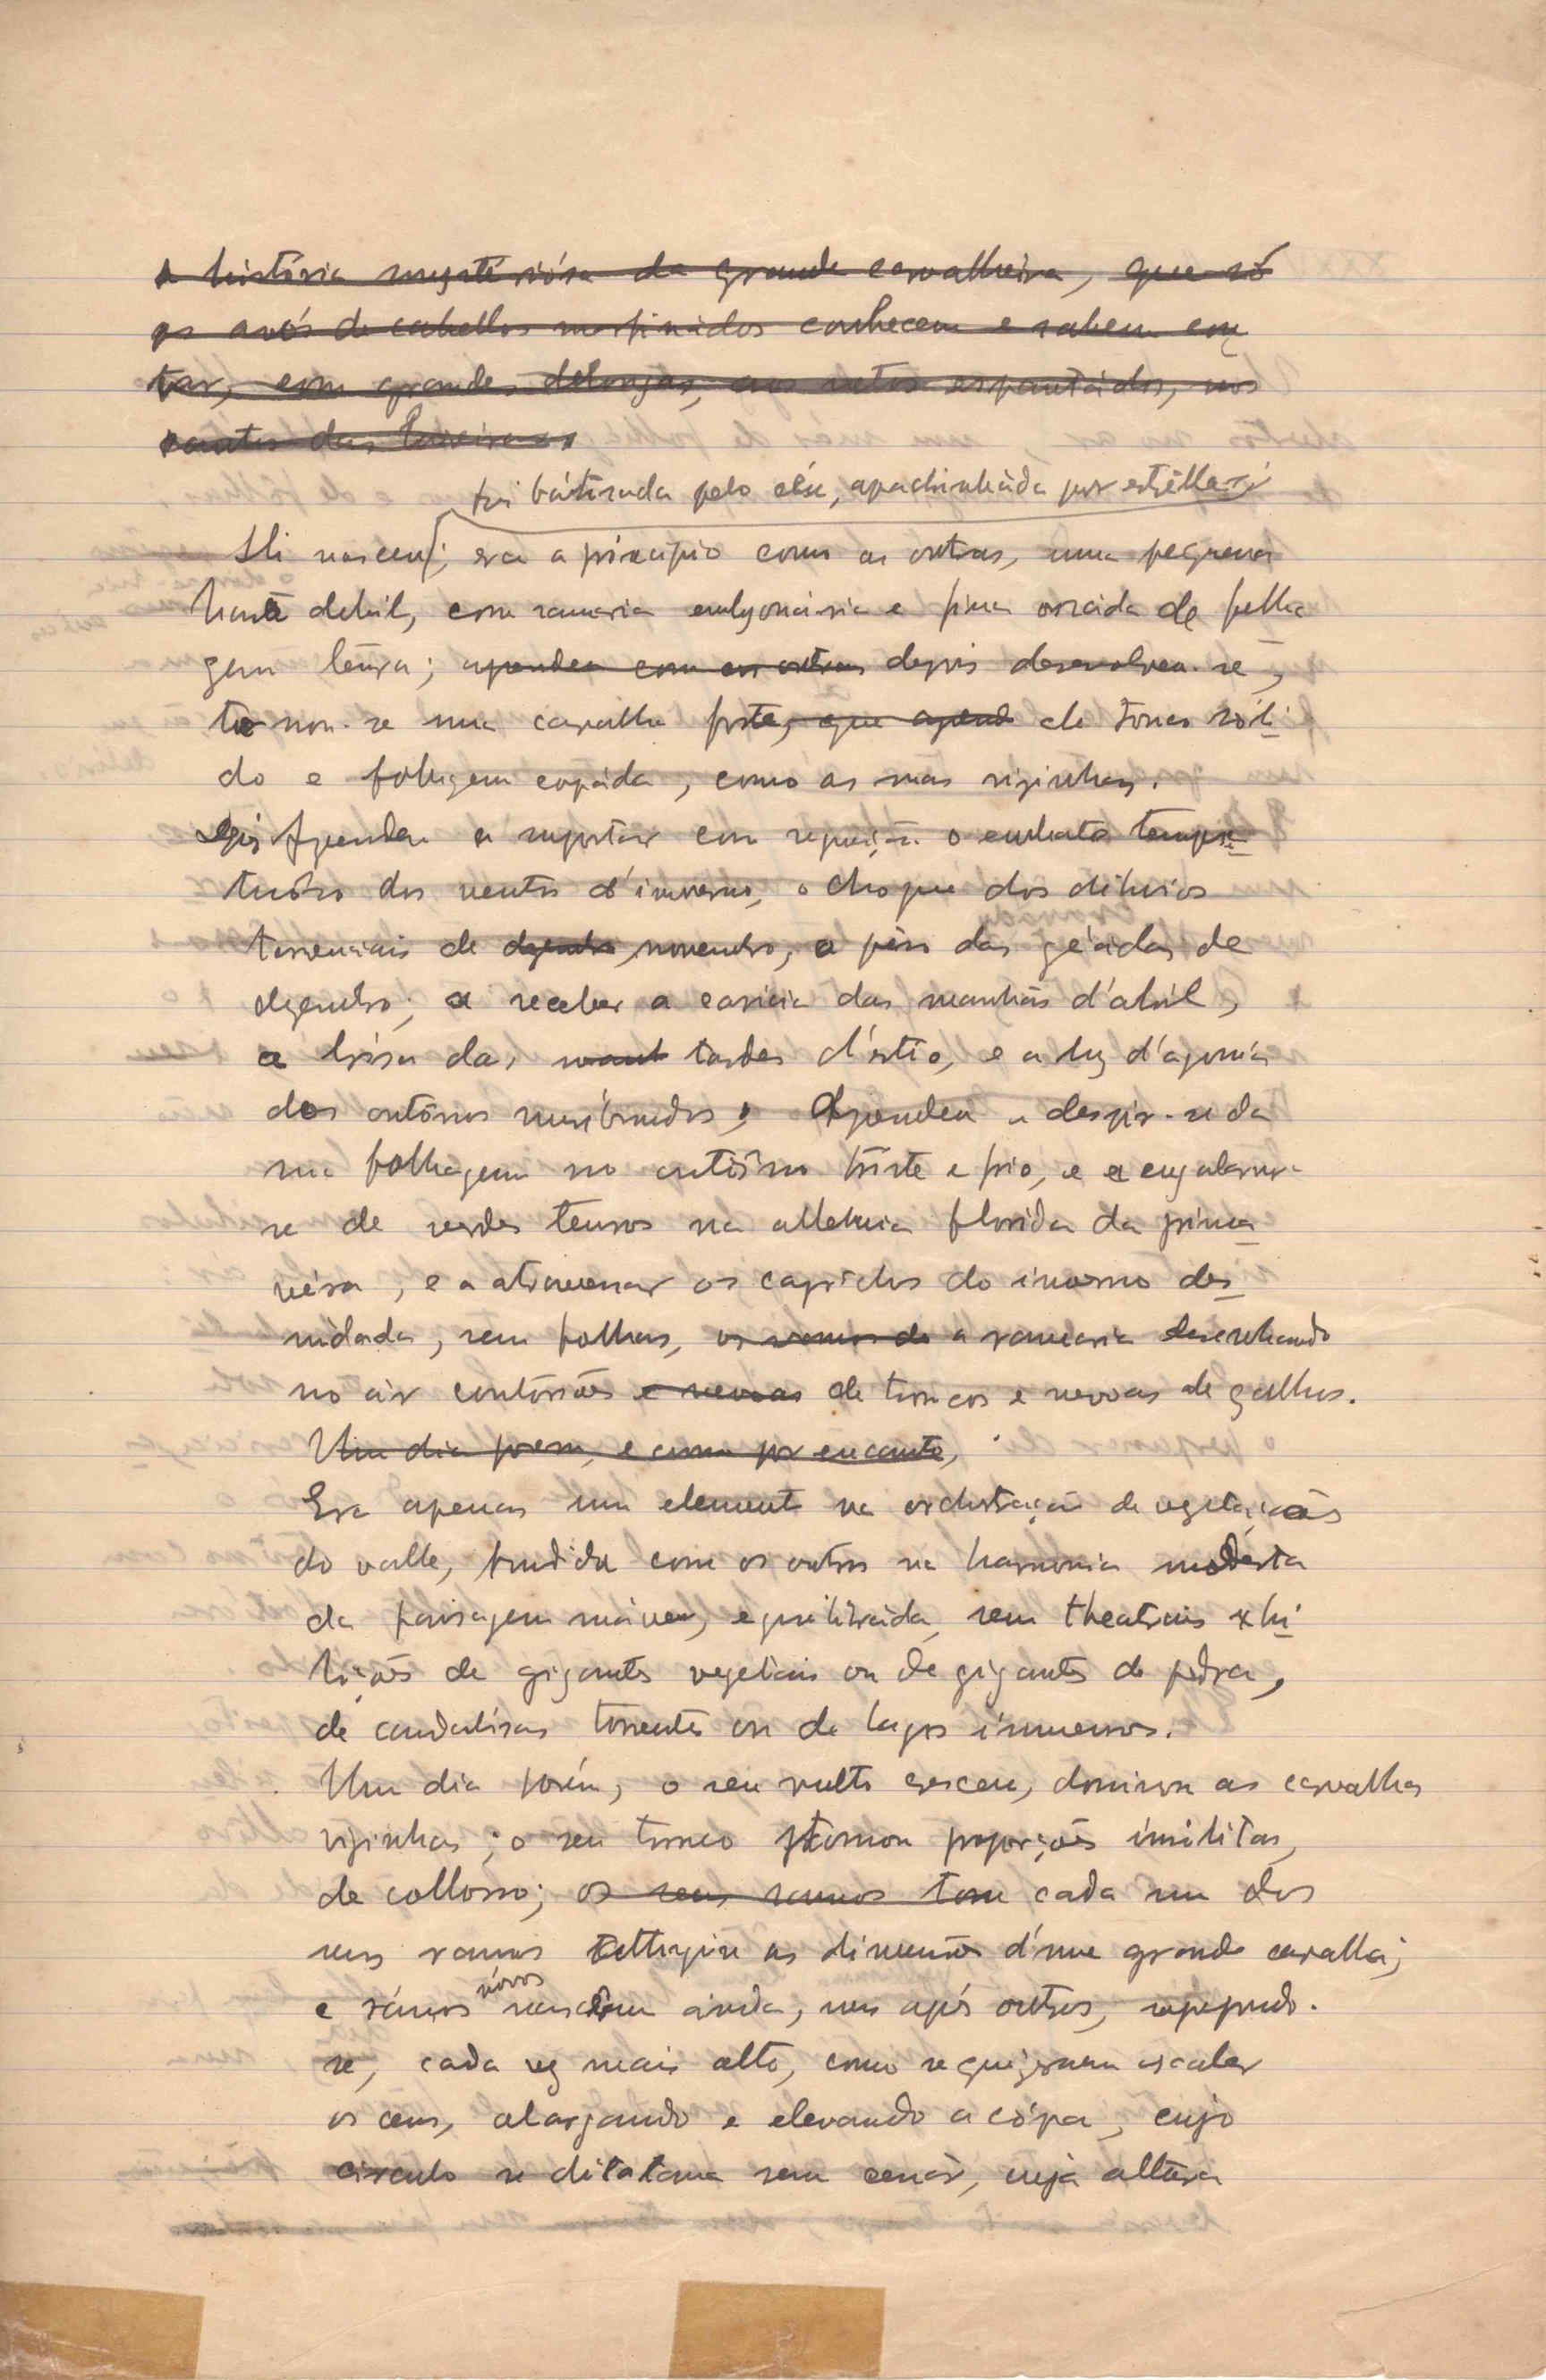 a história mysteriósa da grande carvalheira, que só
os avós de cabellos marfinádos conhecem e sabem con
tar, com grandes delongas, aos netos espantádos, nos
das
foi bátisada pelo céu, apadrinháda por estrêllas;
Ali nasceu; era a princípio como as outras, uma pequena
haste debil, com ramaria embryonária e fina de folha
gem tênra; aprendeu com as outras depois desenvolveu-se,
tornou-se uma carvalha forte, que apend de tronco sóli
do e folhagem copáda, como as suas visinhas.
Aprendeu a suportar com o embate tempes
tuôso dos ventos d'inverno, o choque dos diluvios
torrenciais de dezembro novembro, o pêso das geádas de
dezembro; a receber a caricia das manhãs d'abril,
a brisa das manh tardes d'estio, e a luz d'agonia
dos outônos moribundos. Aprendeu a despir-se da
sua folhagem no outôno triste e frio, e a engalanar-
se de verdes tenros na alleluia florida da prima
véra, e a atravessar os caprichos do inverno des
nudada, sem folhas, os ramos do a ramaria desenhando
no ár contorsões e nervoas de troncos e nervoas de galhos.
Um dia porem, e como por encanto,
Era apenas um elemento na orchestração de vegetações
do valle, fundida com os outros na harmonia modesta
da paisagem suáve, equilibráda, sem theatrais exhi
bições de gigantes vegetais ou de gigantes de pedra,
de caudalósas torrentes ou de lagos immensos.
Um dia porém, o seu vulto cresceu, dominou as carvalhas
visinhas; o seu tronco tomou proporções inséditas,
de collosso; os seus ramos tom cada um dos
seus ramos attingiu as dimensões d'uma grande carvalha;
e rámos nóvos nasciam ainda, uns após outros,
se, cada vez mais alto, como se quizessem escalar
os ceus, alargando e elevando a cópa, cujo
circulo se dilatava sem cessár, cuja altura